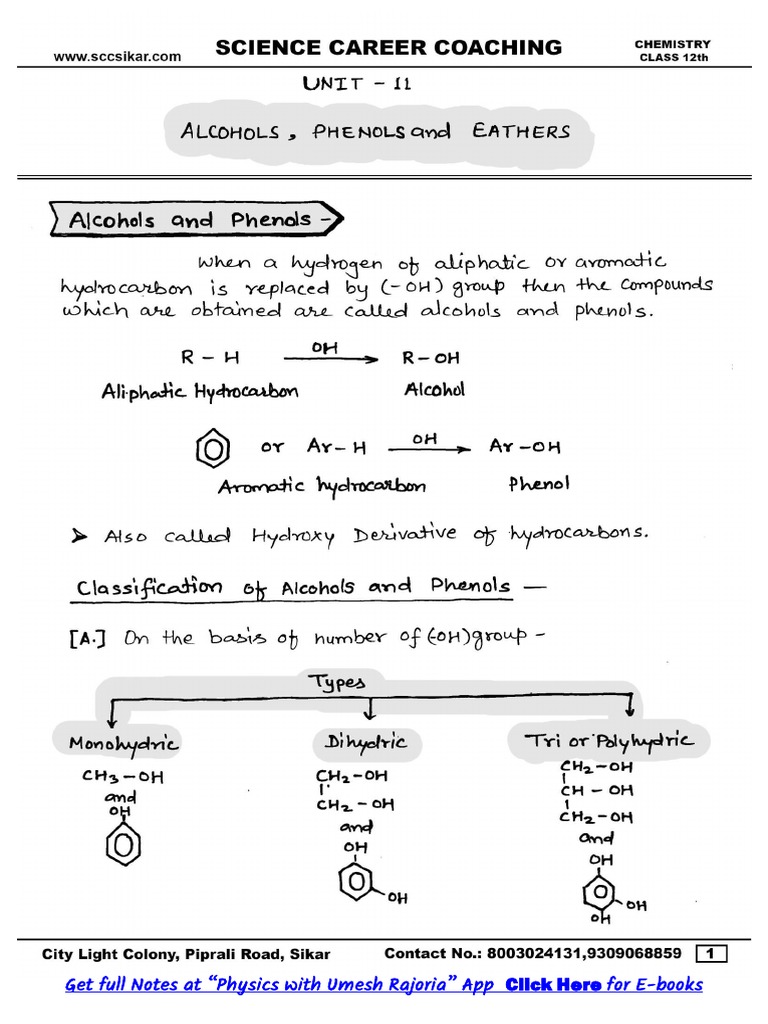 www.sccsikar.com
SCIENCE CAREER COACHING
CHEMISTRY
CLASS 12th
UNIT - 11
ALCOHOLS, PHENOLS and EATHERS
Alcohols and Phenols -
When a hydrogen of aliphatic or aromatic
hydrocarbon is replaced by (-OH) group then the compounds
which are obtained are called alcohols and phenols.
R - H OH R - OH
Aliphatic Hydrocarbon Alcohol
or Ar - H OH Ar - OH
Aromatic hydrocarbon Phenol
➤ Also called Hydroxy Derivative of hydrocarbons.
Classification of Alcohols and Phenols —
[A.] On the basis of number of (-OH) group -
Types
Monohydric
CH3 - OH
and
OH
Dihydric
CH2 - OH
CH2 - OH
and
OH
OH
Tri or Polyhydric
CH2 - OH
CH - OH
CH2 - OH
and
OH
OH
OH
City Light Colony, Piprali Road, Sikar
Contact No.: 8003024131,9309068859
1
Get full Notes at “Physics with Umesh Rajoria” App Click Here for E-books